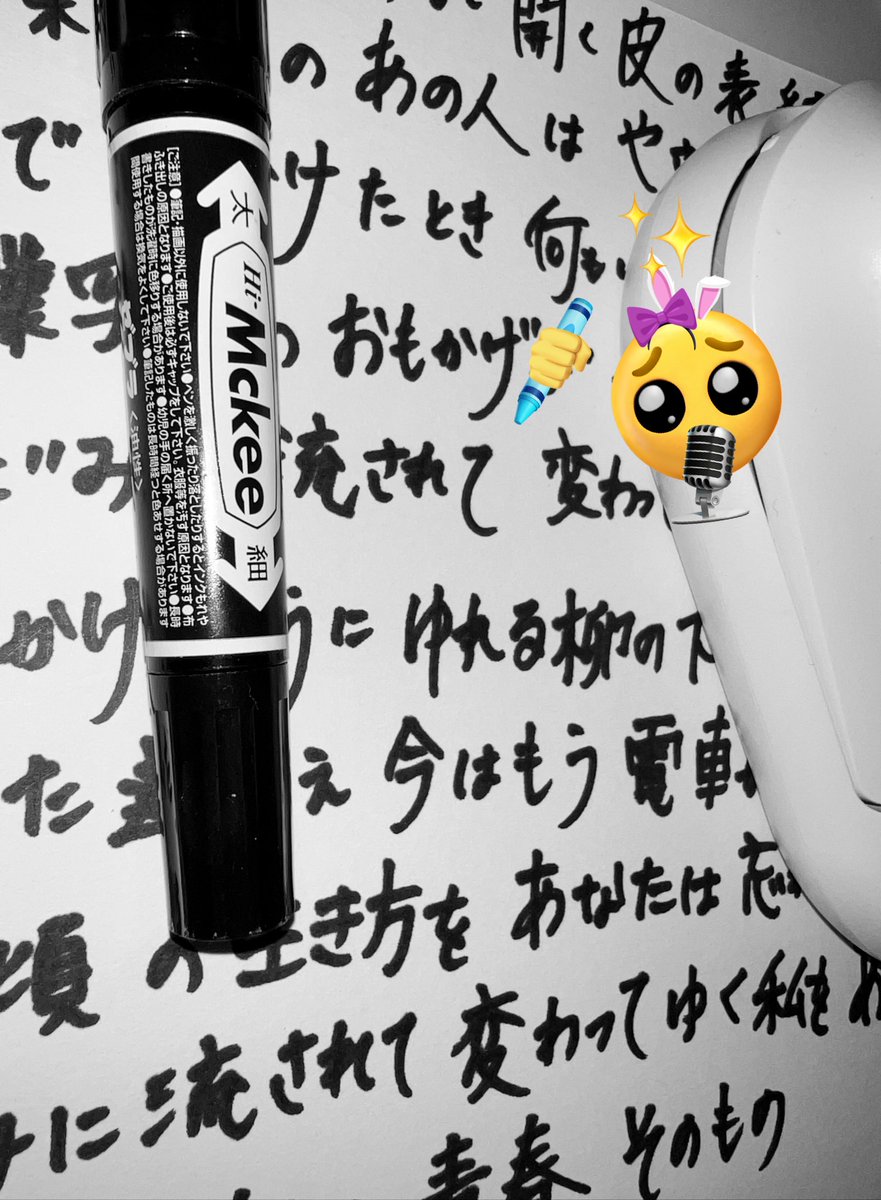 開く 皮の表
の あの人 は や
で けた とき 何も
業写 の おもかげ
どみ 流されて 変わっ
かけ うに ゆれる 柳の下
た え 今はもう 電車
頃 の生き方を あなたは 忘れ
に 流されて 変わってゆく 私を
青春 そのもの
太
Hi-Mckee
細
ゼブラ
<油性>
[ご注意]●筆記・描画以外に使用しないで下さい●ペンを激しく振ったり落としたりするとインクもれや
ふき出しの原因となります●ご使用後は必ずキャップをして下さい。衣服等を汚す原因となります●布
書きしたものが洗濯時に色移りする場合があります●幼児の手の届く所へ置かないで下さい●長時
間使用する場合は換気をよくして下さい●筆記したものは長時間経つと色あせする場合があります